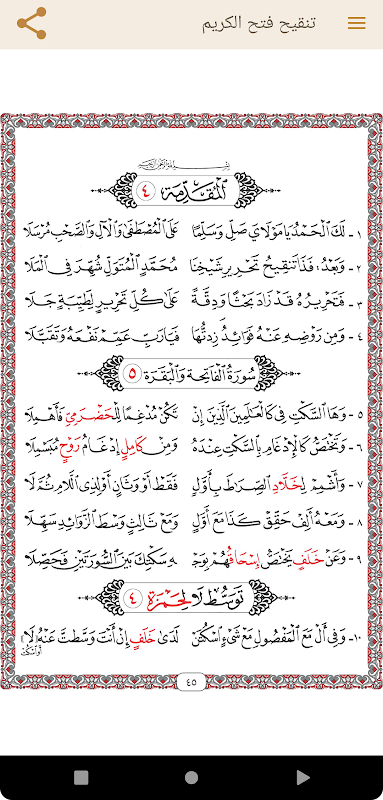 تنقيح فتح الكريم
بِسْمِ اللَّهِ الرَّحْمَٰنِ الرَّحِيمِ
المُقَدِّمَة ٤
١ - لَكَ الْحَمْدُ يَا مَوْلَايَ صَلِّ وَسَلِّمًا عَلَى الْمُصْطَفَى وَالْآلِ وَالصَّحْبِ مُرْسَلَا
٢ - وَبَعْدُ: فَذَا تَنْقِيحُ تَحْرِيرِ شَيْخِنَا مُحَمَّدٍ الْمُتَوَلِّ شُهِّرَ فِي الْمَلَا
٣ - فَتَحْرِيرُهُ قَدْ زَادَ بَحْثًا وَدِقَّةً عَلَى كُلِّ تَحْرِيرٍ لِطَيِّبَةٍ جَلَا
٤ - وَمِن رَوْضِهِ عَنْهُ فَوَائِدُ زِدتُّهَا فَيَا رَبِّ عَمِّمْ نَفْعَهُ وَتَقَبَّلَا
سُورَةُ الْفَاتِحَةِ وَالْبَقَرَةِ ٥
٥ - وَهَا السَّكْتِ فِي كَالْعَالَمِينَ الَّذِينَ إِنْ تَكُنْ مُدْغِمًا لِلْحَضْرَمِيِّ فَأَهْمِلَا
٦ - وَيَخْتَصُّ كَالْإِدْغَامِ بِالسَّكْتِ عِنْدَهُ وَمِنْ كَامِلٍ إِدْغَامُ رَوْحٍ مُبَسْمِلَا
٧ - وَأَشْمِمْ لِخَلَّادِ الصِّرَاطَ بِأَوَّلٍ فَقَطْ أَوْ وَثَانٍ أَوْ لِذِي اللَّامِ ثُمَّ لَا
٨ - وَمَعْهُ أَلِفْ حَقِّقْ كَذَا مَعَ أَوَّلٍ وَمَعْ ثَالِثٍ وَسْطَ الزَّوَائِدِ سَهِّلَا
٩ - وَعَنْ خَلَفٍ يَخْتَصُّ إِسْحَاقُهُمْ بِوَجْـ ـهِ سَكْتِكَ بَيْنَ السُّورَتَيْنِ فَحَصِّلَا
تَوَسُّطُ لَا لِحَمْزَةَ ٤
١٠ - وَفِي أَلْ مَعَ الْمَفْصُولِ مَعْ شَيْءٍ اسْكُتَنْ لَدَى خَلَفٍ إِنْ أَنْتَ وَسَّطْتَ عَنْهُ (لَا)
٤٥